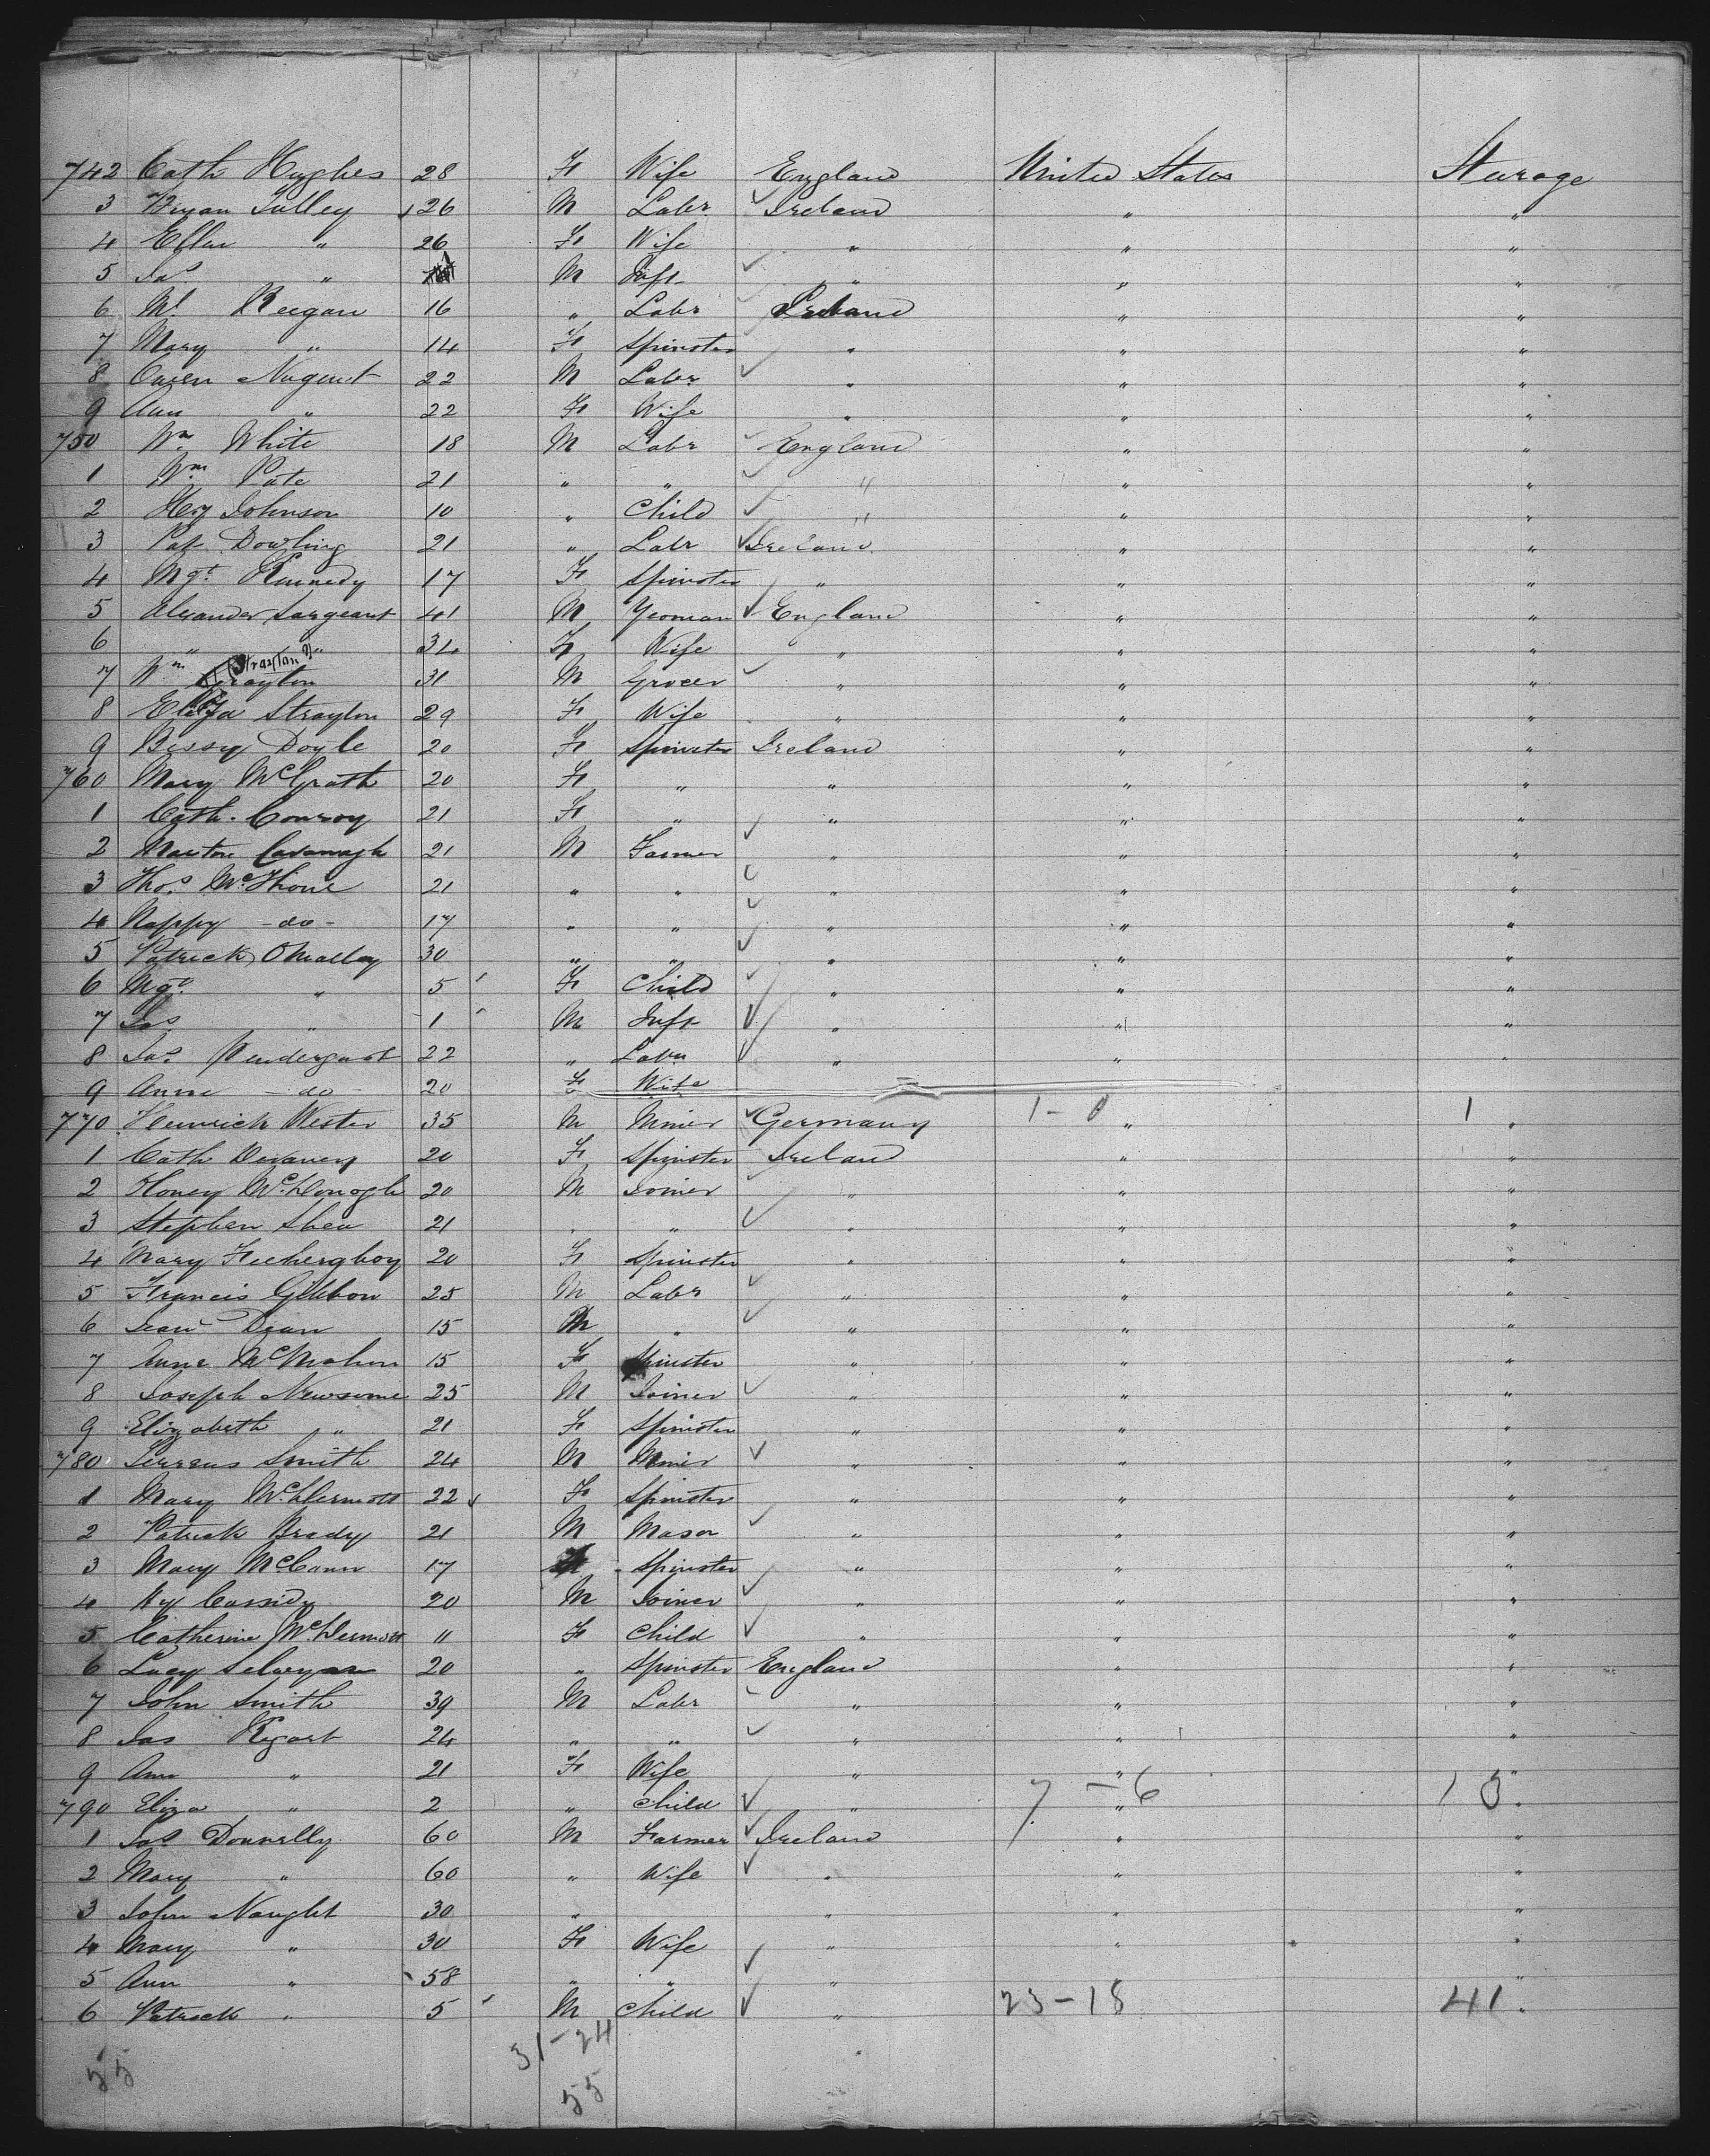 742 Cath Hughes 28 F Wife England United States Steerage
3 Bryan Tulley 26 M Labr Ireland " "
4 Ellen " 26 F Wife " " "
5 Jas " M Inft " " "
6 Ml Reegan 16 " Labr Ireland " "
7 Mary " 14 F Spinster " " "
8 Owen Nugent 22 M Labr " " "
9 Ann " 22 F Wife " " "
750 Wm White 18 M Labr England " "
1 Wm Pate 21 " " " " "
2 Hy Johnson 10 " Child " " "
3 Pat Dowling 21 " Labr Ireland " "
4 Mgt Kennedy 17 F Spinster " " "
5 Alexander Sargeant 41 M Yeoman England " "
6 " " 34 F Wife " " "
7 Wm Strayton 31 M Grocer " " "
8 Eliza Strayton 29 F Wife " " "
9 Bessy Doyle 20 F Spinster Ireland " "
760 Mary McGrath 20 F " " " "
1 Cath. Conroy 21 F " " " "
2 Martin Cavanagh 21 M Farmer " " "
3 Thos McThone 21 " " " " "
4 Nappy - do - 17 " " " " "
5 Patrick OMalley 30 " " " " "
6 Mgt " 5 F Child " " "
7 Jas " 1 M Inft " " "
8 Jas Pendergast 22 " Labr " " "
9 Anne - do - 20 F Wife
770 Heinrich Wester 35 M Miner Germany 1 - 0 " 1 "
1 Cath Devaney 20 F Spinster Ireland " "
2 Honey McDonogh 20 M Joiner " " "
3 Stephen Shea 21 " " " " "
4 Mary 20 F Spinster " " "
5 Francis Gibbon 25 M Labr " " "
6 Dean 15 M " " " "
7 Anne McMahon 15 F Spinster " " "
8 Joseph Newsome 25 M Joiner " " "
9 Elizabeth " 21 F Spinster " " "
780 Smith 24 M Miner " " "
1 Mary McDermott 22 F Spinster " " "
2 Patrick Brady 21 M Mason " " "
3 Mary McCann 17 F Spinster " " "
4 Hy Cassidy 20 M Joiner " " "
5 Catherine McDermott 11 F Child " " "
6 Lucy 20 " Spinster England " "
7 John Smith 39 M Labr " " "
8 Jas 24 " " " " "
9 Ann " 21 F Wife " " "
790 Eliza " 2 " Child " 7 - 6 " 13 "
1 Jas Donnelly 60 M Farmer Ireland " "
2 Mary " 60 " Wife " " "
3 John Naught 30 " " " "
4 Mary " 30 F Wife " " "
5 Ann " 58 " " " " "
6 Patrick " 5 M Child " 23 - 18 41 "
31 - 24
55 55